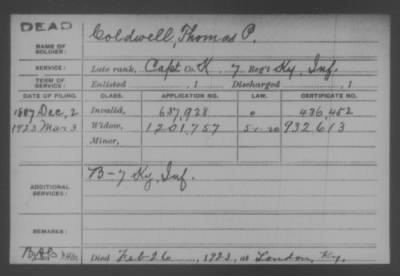 DEAD
NAME OF SOLDIER: Coldwell, Thomas P.
SERVICE: Late rank, Capt Co. K. 7 Reg't Ky. Inf.
TERM OF SERVICE: Enlisted , 1 Discharged , 1
DATE OF FILING. CLASS. APPLICATION NO. LAW. CERTIFICATE NO.
1887 Dec, 2 Invalid, 637,928 436,452
1923 Mar 3 Widow, 1201,757 5-1-20 932,613
Minor,
ADDITIONAL SERVICES: B-7 Ky. Inf.
REMARKS:
Died Feb 26, 1923, at London, Ky.